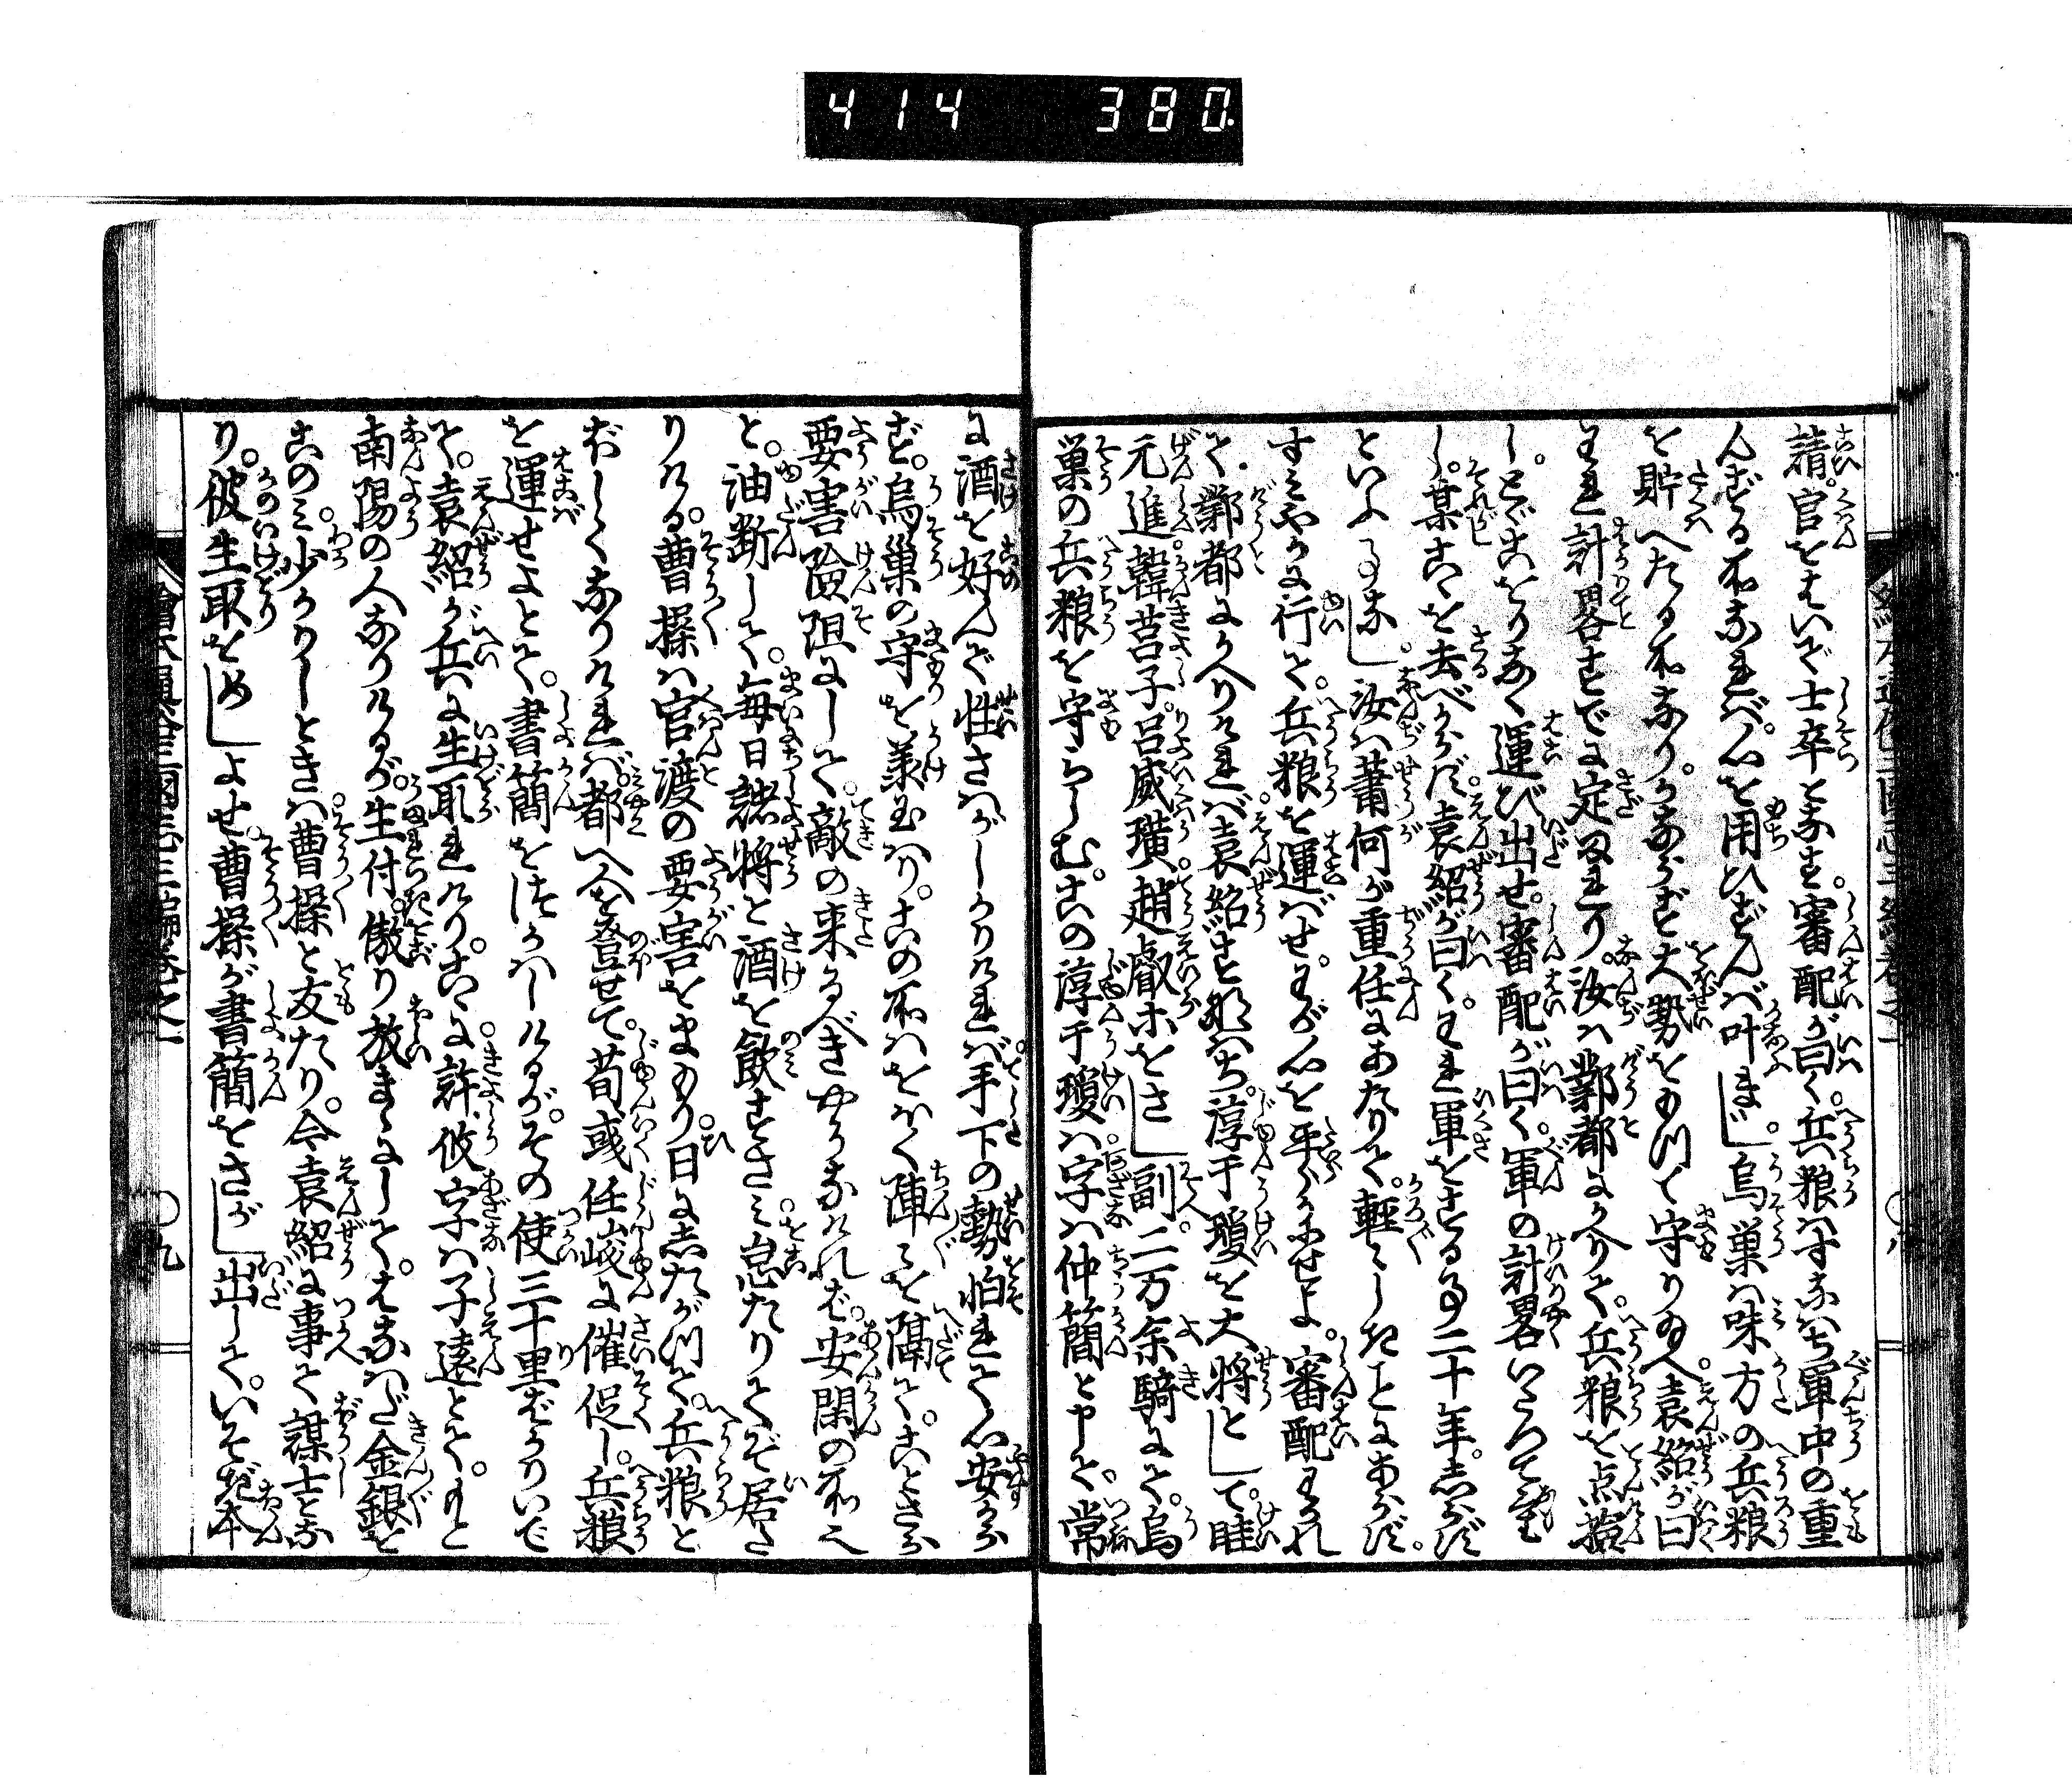 414 380
請。官をはいで士卒となす。審配が曰く。兵粮はすなはち軍中の重
んずる所なれば。心を用ひずんば叶まじ。烏巣は味方の兵粮
を貯へたる所なり。かならず大勢をもつて守り給へ。袁紹が曰
われ計畧すでに定まれり。汝は鄴都にかへりて。兵粮を点撿
し。とどこをりなく運び出せ。審配が曰く。軍の計畧いまだ
し。某こゝを去べからず。袁紹が曰く。われ軍をする事二十年。志らず
といふ事なし。汝は蕭何が重任にあたりて。軽々しきことにあらず。
すみやかに行て。兵粮を運ばせ。わが心を平かにせよ。審配わかれ
て。鄴都にかへりければ。袁紹すなはち。淳于瓊を大将として。睦
元進。韓莒子。呂威璜。趙叡ホをさし副へ。二万余騎にて。烏
巣の兵粮を守らしむ。この淳于瓊は字は仲簡と申て。常
に酒を好んで性さはがしかりければ。手下の勢怕れて心安から
ず。烏巣の守を羕玉はり。この所はをほく陣々を隔て。ことさら
要害険阻にして。敵の来るべきやうなければ。安閑の所へ
と。油断して。毎日諸将と酒を飲すさみ。怠たりてぞ居た
りける。曹操は官渡の要害をまもり。日に志たがつて。兵粮と
ぼしくなりければ。都へ人を登せて。荀彧任峻に催促し。兵粮
を運せよとて。書簡をつかはしけるが。その使三十里ばかりいで
て。袁紹が兵に生取れけり。こゝに許攸字は子遠とて。もと
南陽の人なりけるが。生付。傲り放まゝにして。はなはだ金銀を
このみ。少かりしときは。曹操と友たり。今袁紹に事て謀士とな
り。彼生取をめしよせ。曹操が書簡をさがし出して。いそぎ本
〇九